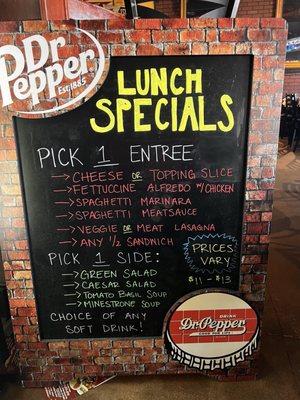 Dr Pepper
EST. 1885
LUNCH
SPECIALS
PICK 1 ENTREE
→ CHEESE OR TOPPING SLICE
→ FETTUCCINE ALFREDO W/CHICKEN
→ SPAGHETTI MARINARA
→ SPAGHETTI MEATSAUCE
→ VEGGIE OR MEAT LASAGNA
→ ANY 1/2 SANDWICH
PICK 1 SIDE:
→ GREEN SALAD
→ CAESAR SALAD
→ TOMATO BASIL SOUP
→ MINESTRONE SOUP
CHOICE OF ANY
SOFT DRINK!
PRICES
VARY
$11 - $13
DRINK
Dr. Pepper
GOOD FOR LIFE!